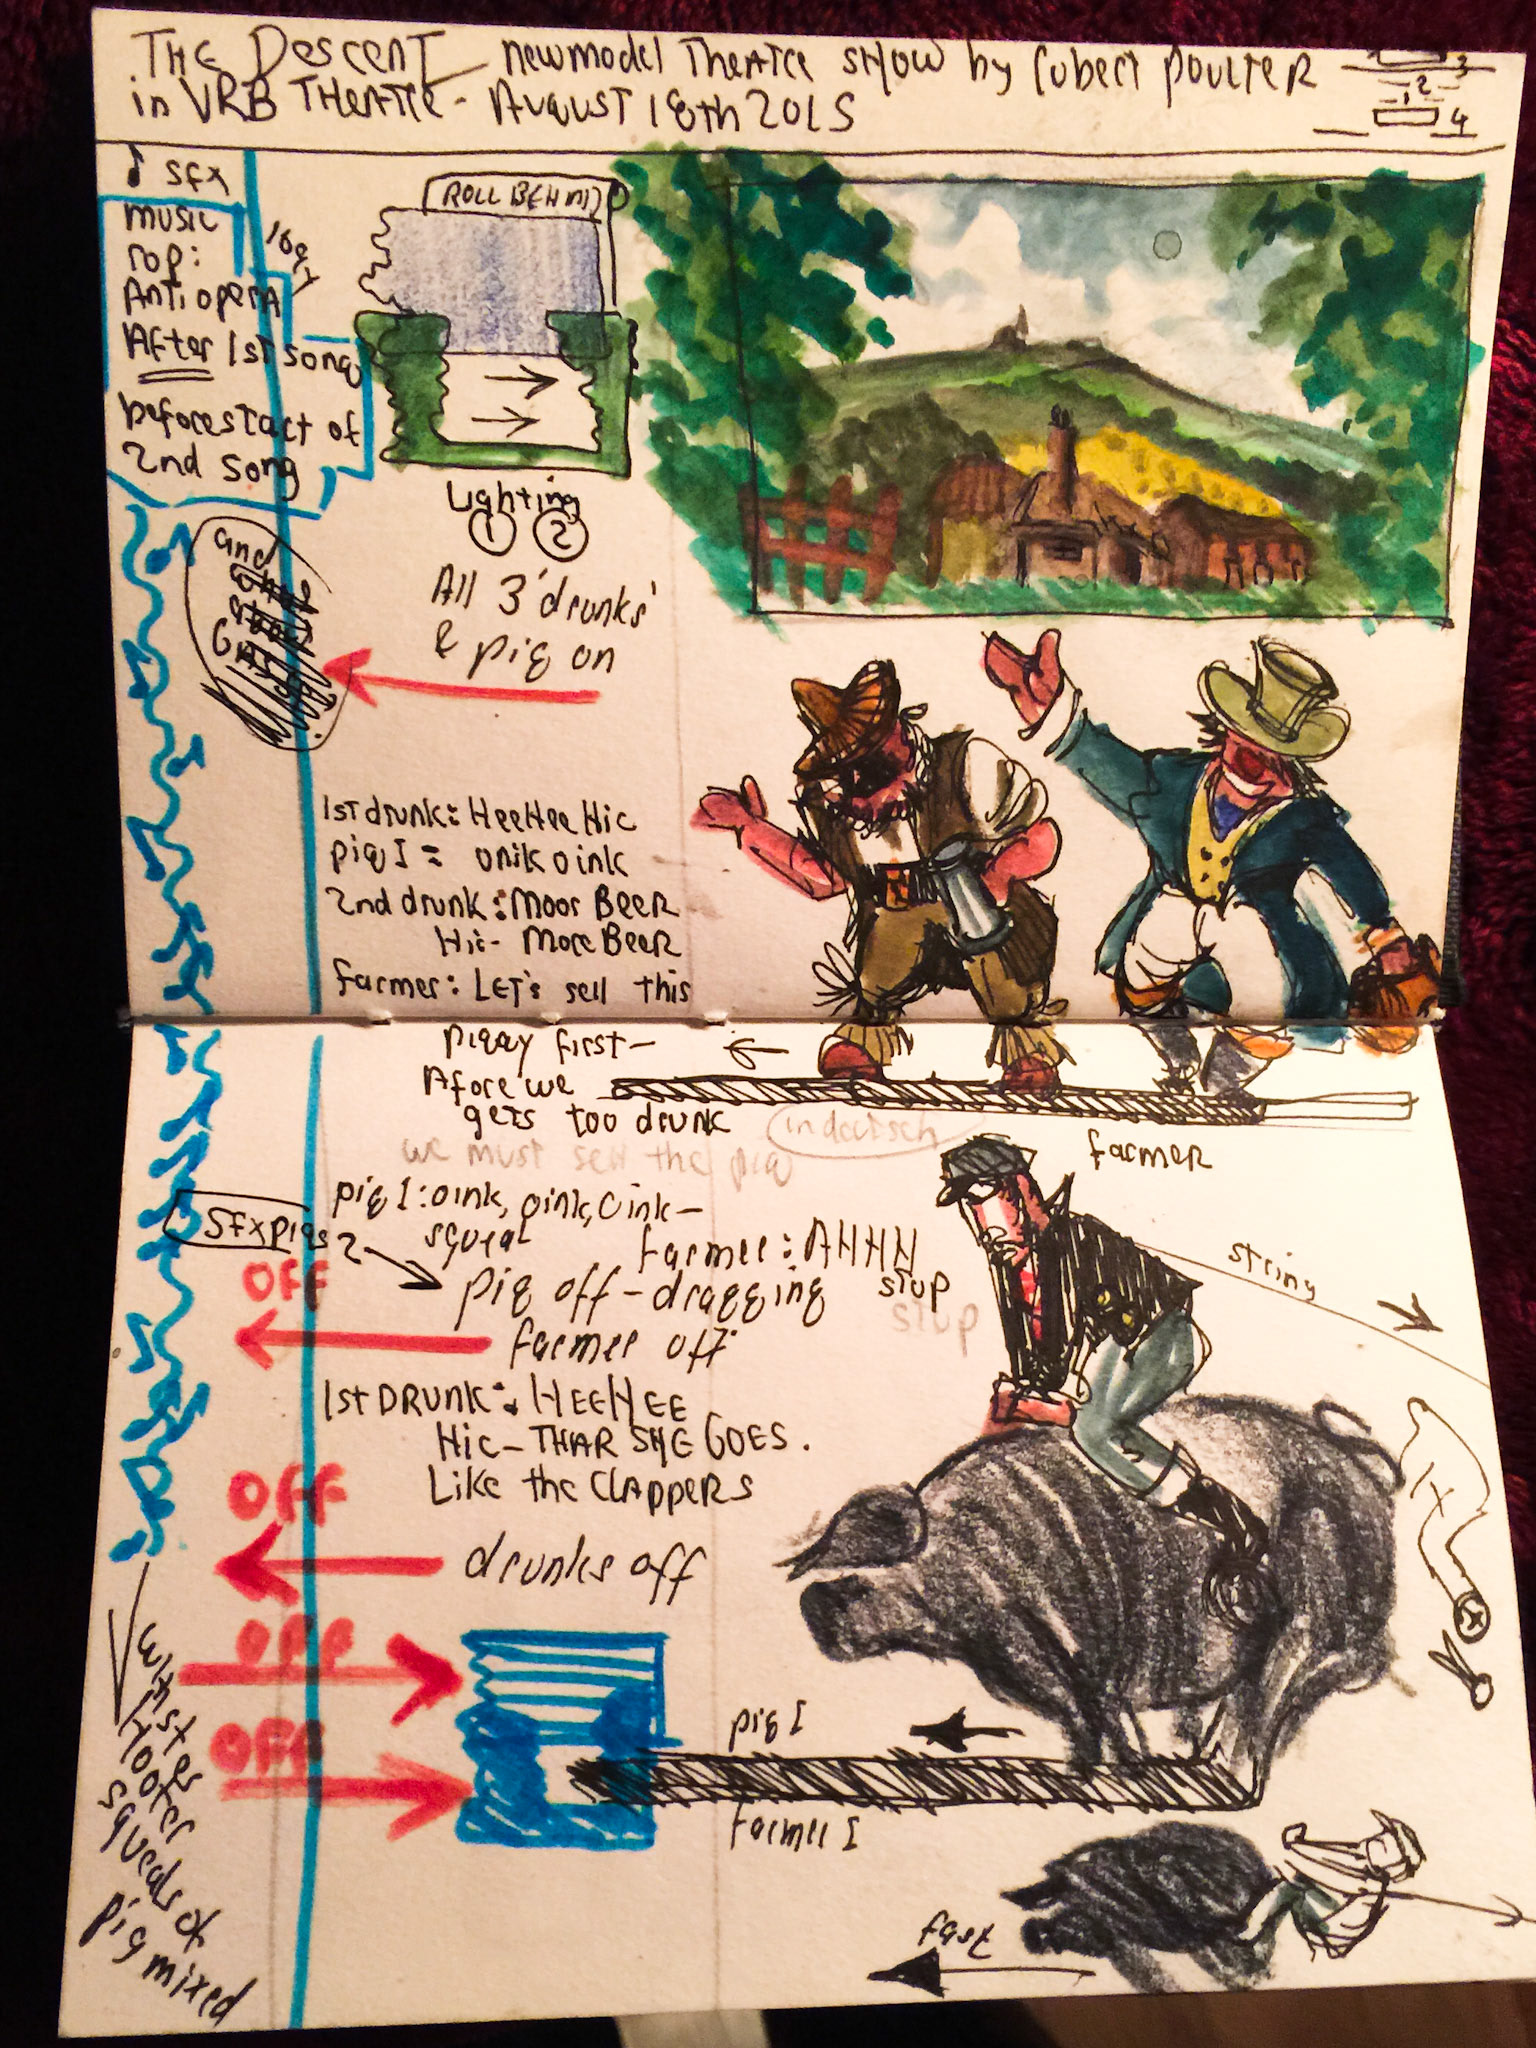 THE DESCENT - new model THEATRE SHOW by robert POULTER
in VRB THEATRE - AUGUST 18th 2015
3
2
1
4
SFX
music
rop:
Anti opera
AFTER 1st song
before start of
2nd song
and
ROLL BEHIND
Lighting
1 2
All 3 'drunks'
& pig on
1st drunk: HeeHee Hic
pig I = onik oink
2nd drunk: Moor BEER
Hic- More BEER
farmer: LET's sell this
piggy first-
Afore we
gets too drunk
in deutsch
we must sell the pig
farmer
pig I: oink, oink, oink -
squeal
SFX pigs 2
farmer: AHHH
stop
stop
string
OFF
pig off - dragging
farmer off
1st DRUNK: HEEHEE
Hic - THAR SHE GOES.
Like the CLAPPERS
OFF
drunks off
OFF
OFF
pig I
farmer I
fast
hooter
squeals of
pig mixed